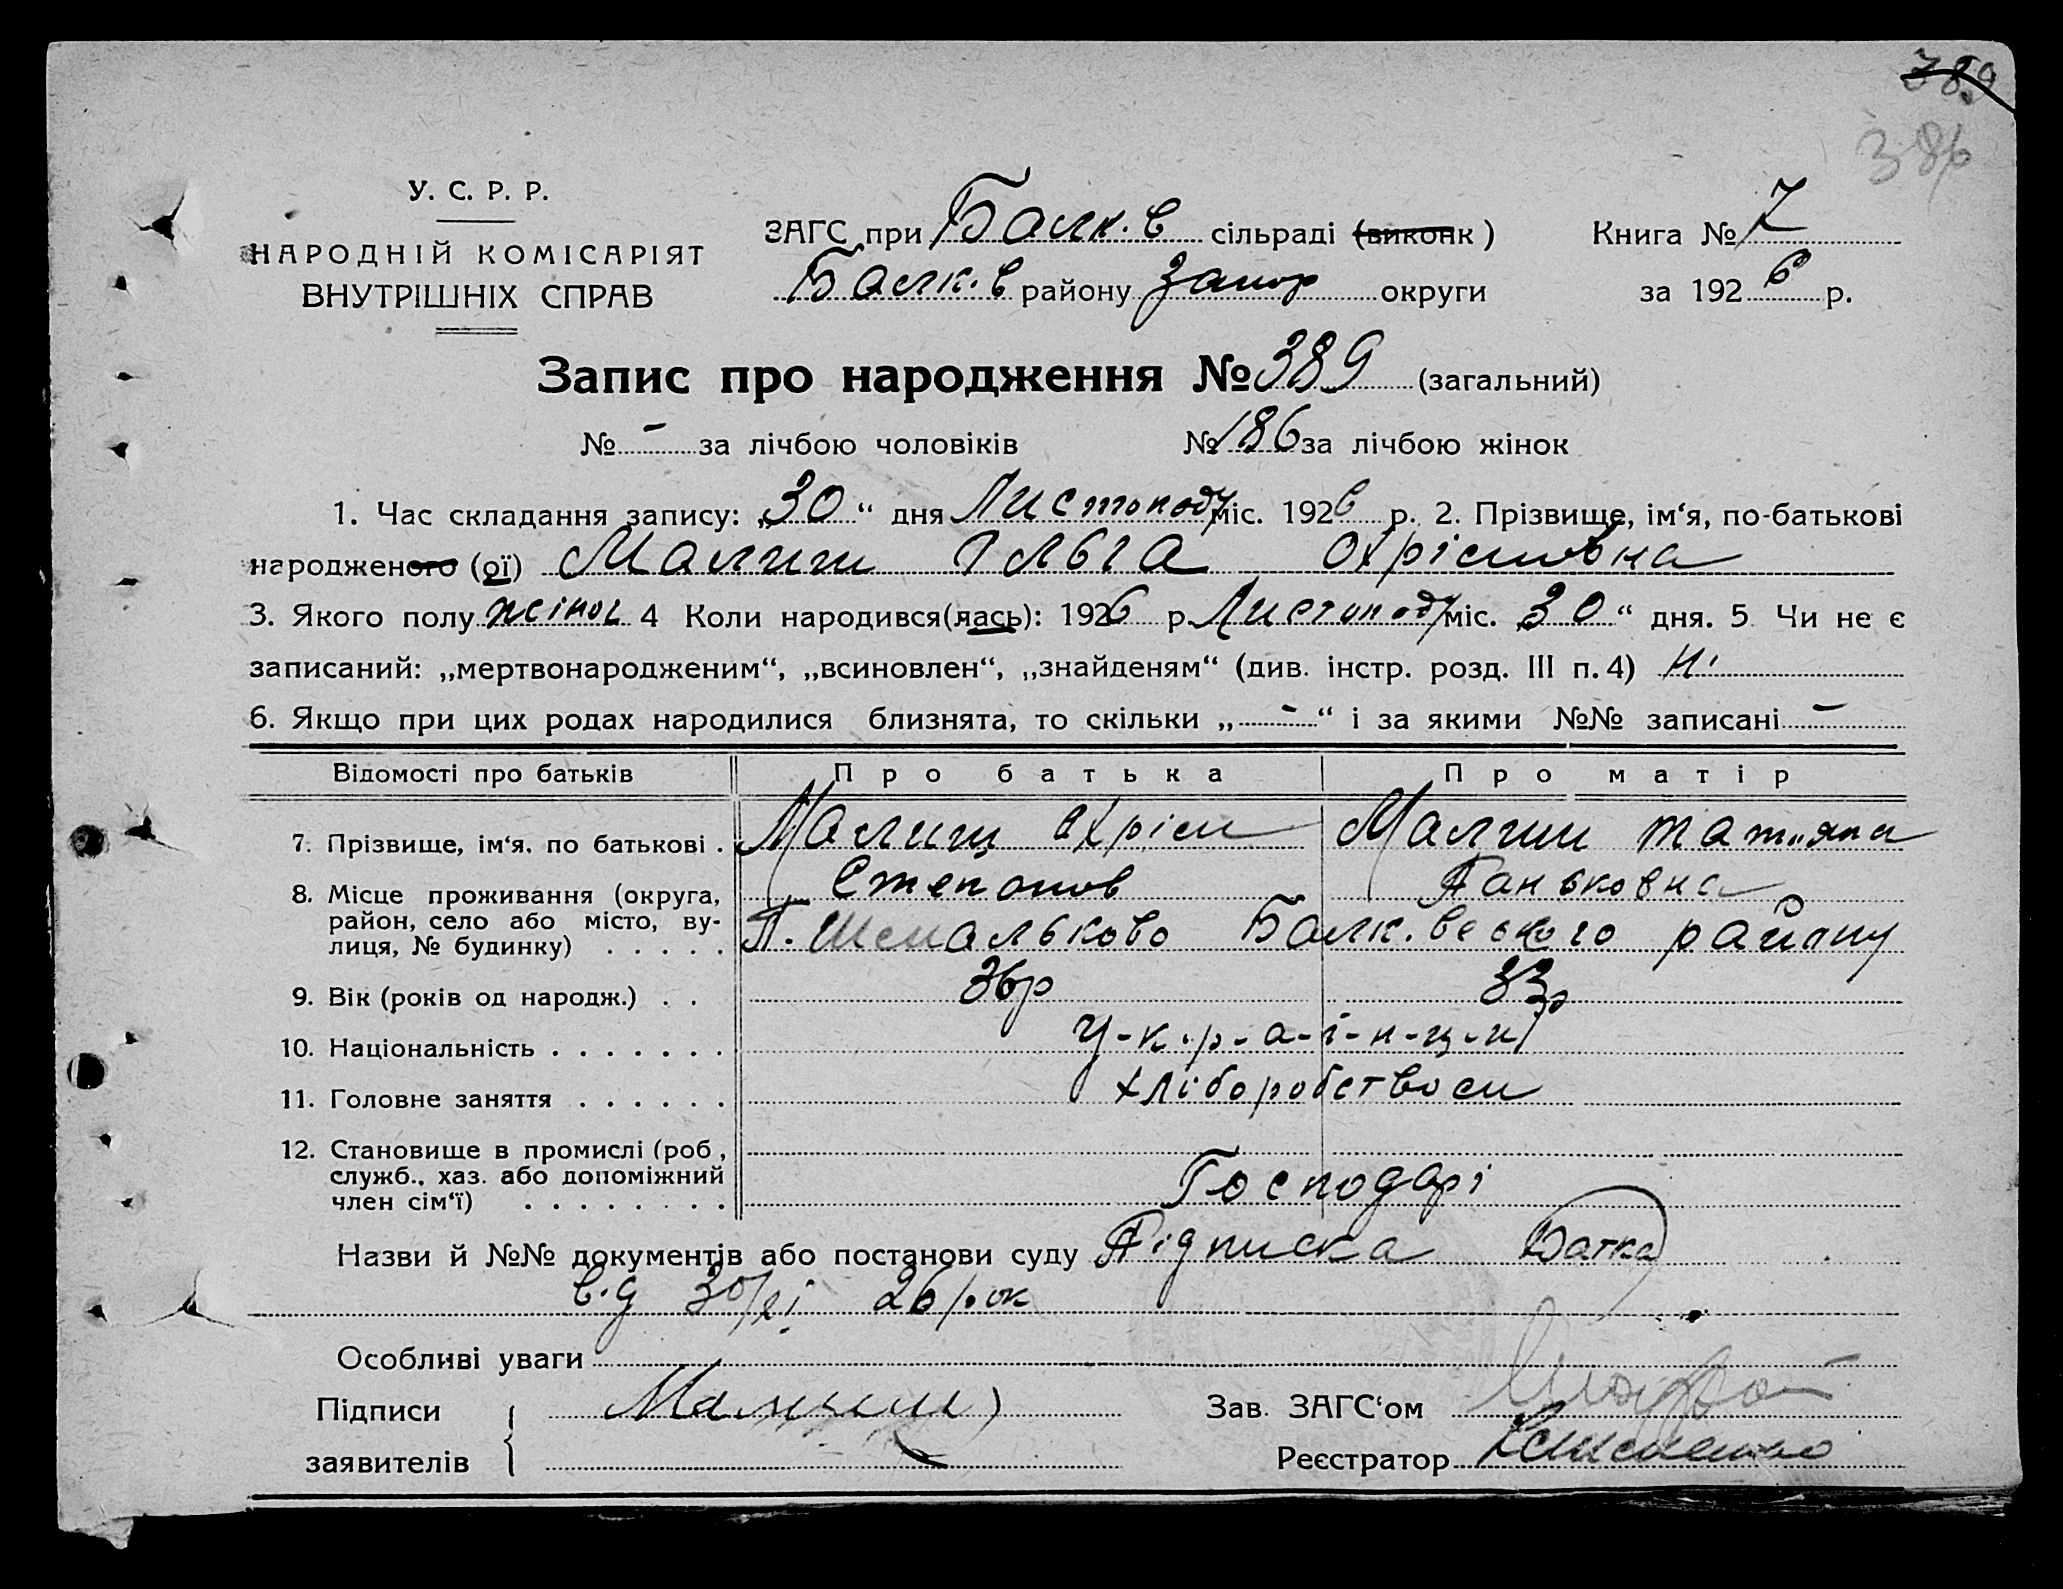 389
386
У. С. Р. Р.
НАРОДНІЙ КОМІСАРІЯТ
ВНУТРІШНІХ СПРАВ
ЗАГС при Балк.в сільраді (виконк)
Балк.в району Запор округи
Книга № 7
за 1926 р.
Запис про народження № 389 (загальний)
№ - за лічбою чоловіків № 186 за лічбою жінок
1. Час складання запису: „30“ дня Листопаду міс. 1926 р. 2. Прізвище, ім‘я, по-батькові
народженого (ої) Малиш Гльга Охрімовна
3. Якого полу жіноч 4 Коли народився(лась): 1926 р. Листопаду міс. „30“ дня. 5 Чи не є
записаний: „мертвонародженим“, „всиновлен“, „знайденям“ (див. інстр. розд. III п. 4) Ні
6. Якщо при цих родах народилися близнята, то скільки „-“ і за якими №№ записані -
Відомості про батьків Про батька Про матір
7. Прізвище, ім‘я, по батькові . Малиш Охрім Малиш Тат„яна
Степанов Паньковна
8. Місце проживання (округа,
район, село або місто, ву-
лиця, № будинку) . . . . . Балк.вського району
9. Вік (років од народж.) . . 36р 33р
10. Національність . . . . . . . У-к-р-а-ї-н-ц-и
11. Головне заняття . . . . . . хліборобством
12. Становище в промислі (роб.,
служб., хаз. або допоміжний
член сім‘ї) . . . . . . . . Господарі
Назви й №№ документів або постанови суду Підписка Батка
від 30/XI 26 рок
Особливі уваги
Підписи Малиш
заявителів
Зав. ЗАГС‘ом
Реєстратор